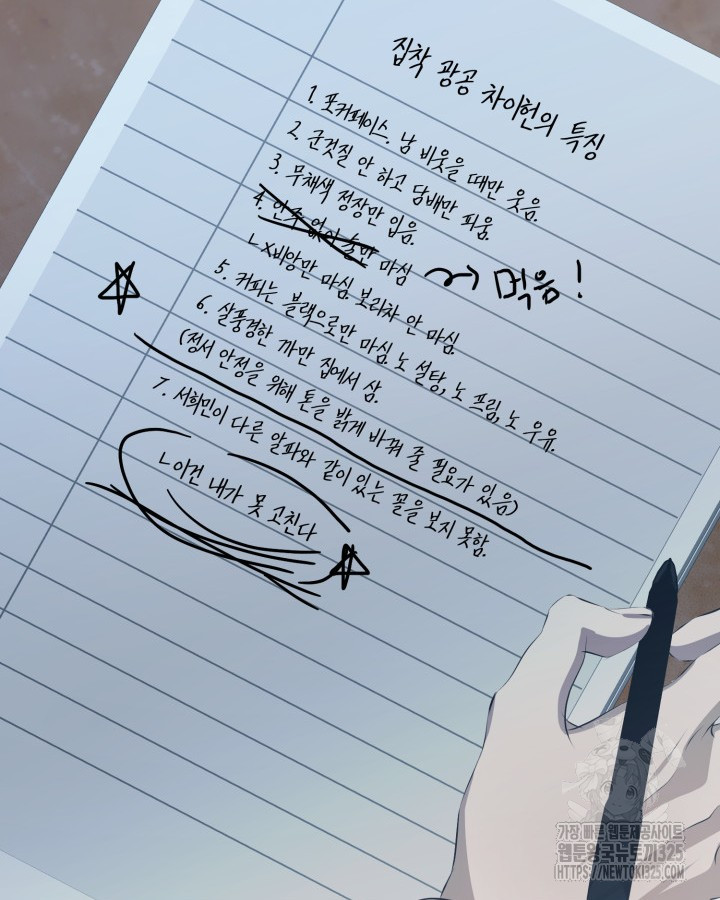 집착 광공 차이헌의 특징
1. 포커페이스. 남 비웃을 때만 웃음.
2. 군것질 안 하고 담배만 피움.
3. 무채색 정장만 입음.
4. 안주 없이 술만 마심
→ 먹음!
ㄴX비앙만 마심. 보리차 안 마심.
5. 커피는 블랙으로만 마심. 노 설탕, 노 프림, 노 우유.
6. 살풍경한 까만 집에서 삶.
(정서 안정을 위해 톤을 밝게 바꿔 줄 필요가 있음)
7. 서희민이 다른 알파와 같이 있는 꼴을 보지 못함.
ㄴ이건 내가 못 고친다
가장 빠른 웹툰제공사이트
웹툰왕국뉴토끼325
HTTPS://NEWTOKI325.COM